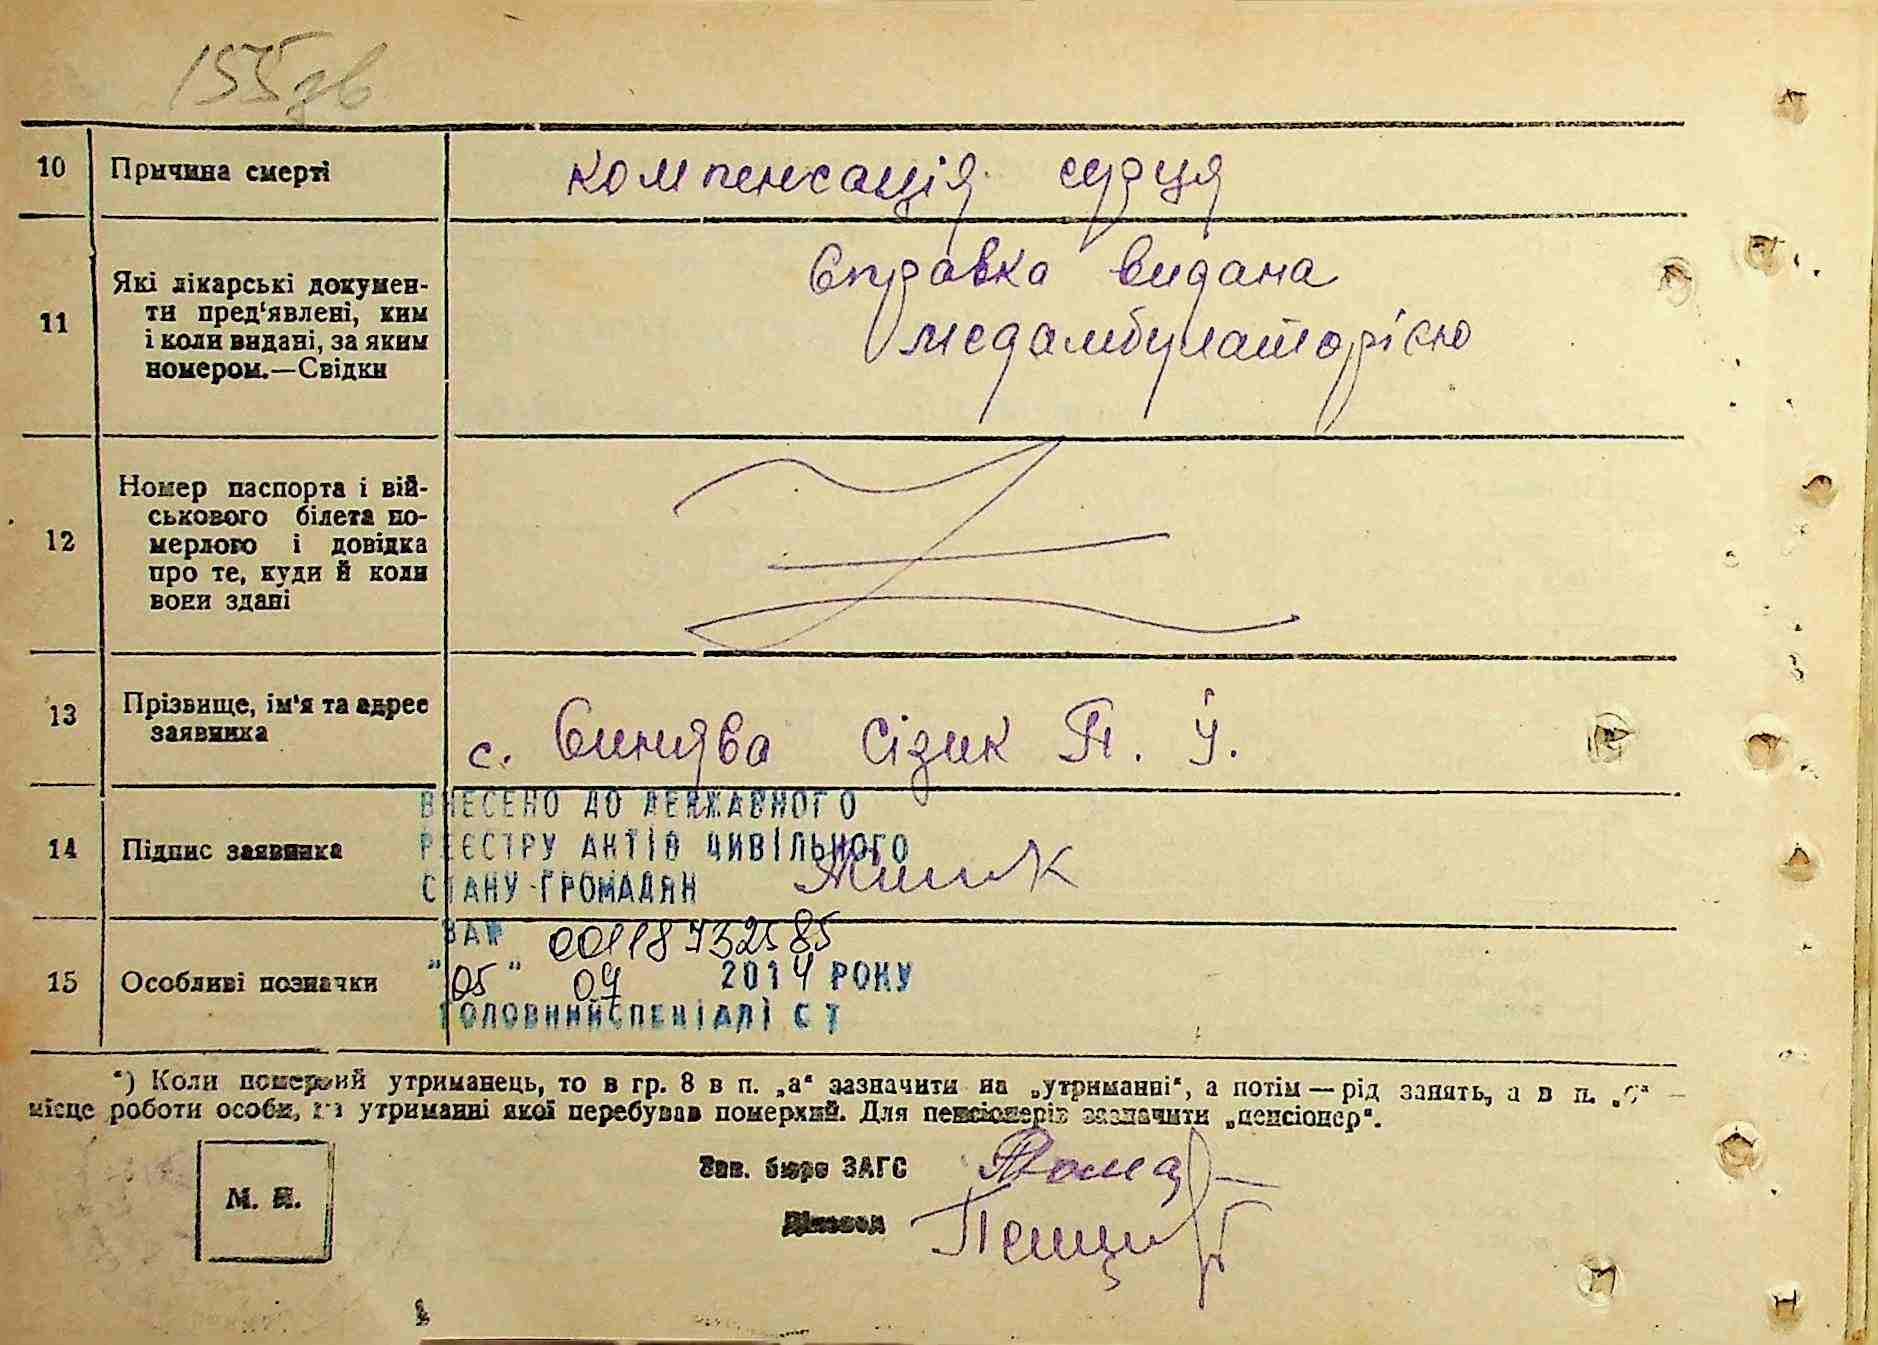 155зв
10 Причина смерті компенсація серця
11 Які лікарські докумен-
ти пред'явлені, ким
і коли видані, за яким
номером.—Свідки
Справка видана
медамбулаторією
12 Номер паспорта і вій-
ськового білета по-
мерлого і довідка
про те, куди й коли
вони здані
13 Прізвище, ім'я та адрес
заявника
с. Синява Сізик П. Й.
ВНЕСЕНО ДО ДЕРЖАВНОГО
РЕЄСТРУ АКТІВ ЦИВІЛЬНОГО
СТАНУ ГРОМАДЯН
14 Підпис заявника
ЗА № 00118732585
15 Особливі позначки
"05" 04 2014 РОКУ
ГОЛОВНИЙ СПЕЦІАЛІСТ
*) Коли померлий утриманець, то в гр. 8 в п. „а“ зазначити на „утриманні“, а потім — рід занять, а в п. „б“ —
місце роботи особи, на утриманні якої перебував померлий. Для пенсіонерів зазначити „пенсіонер“.
Зав. бюро ЗАГС
М. П.
Діловод